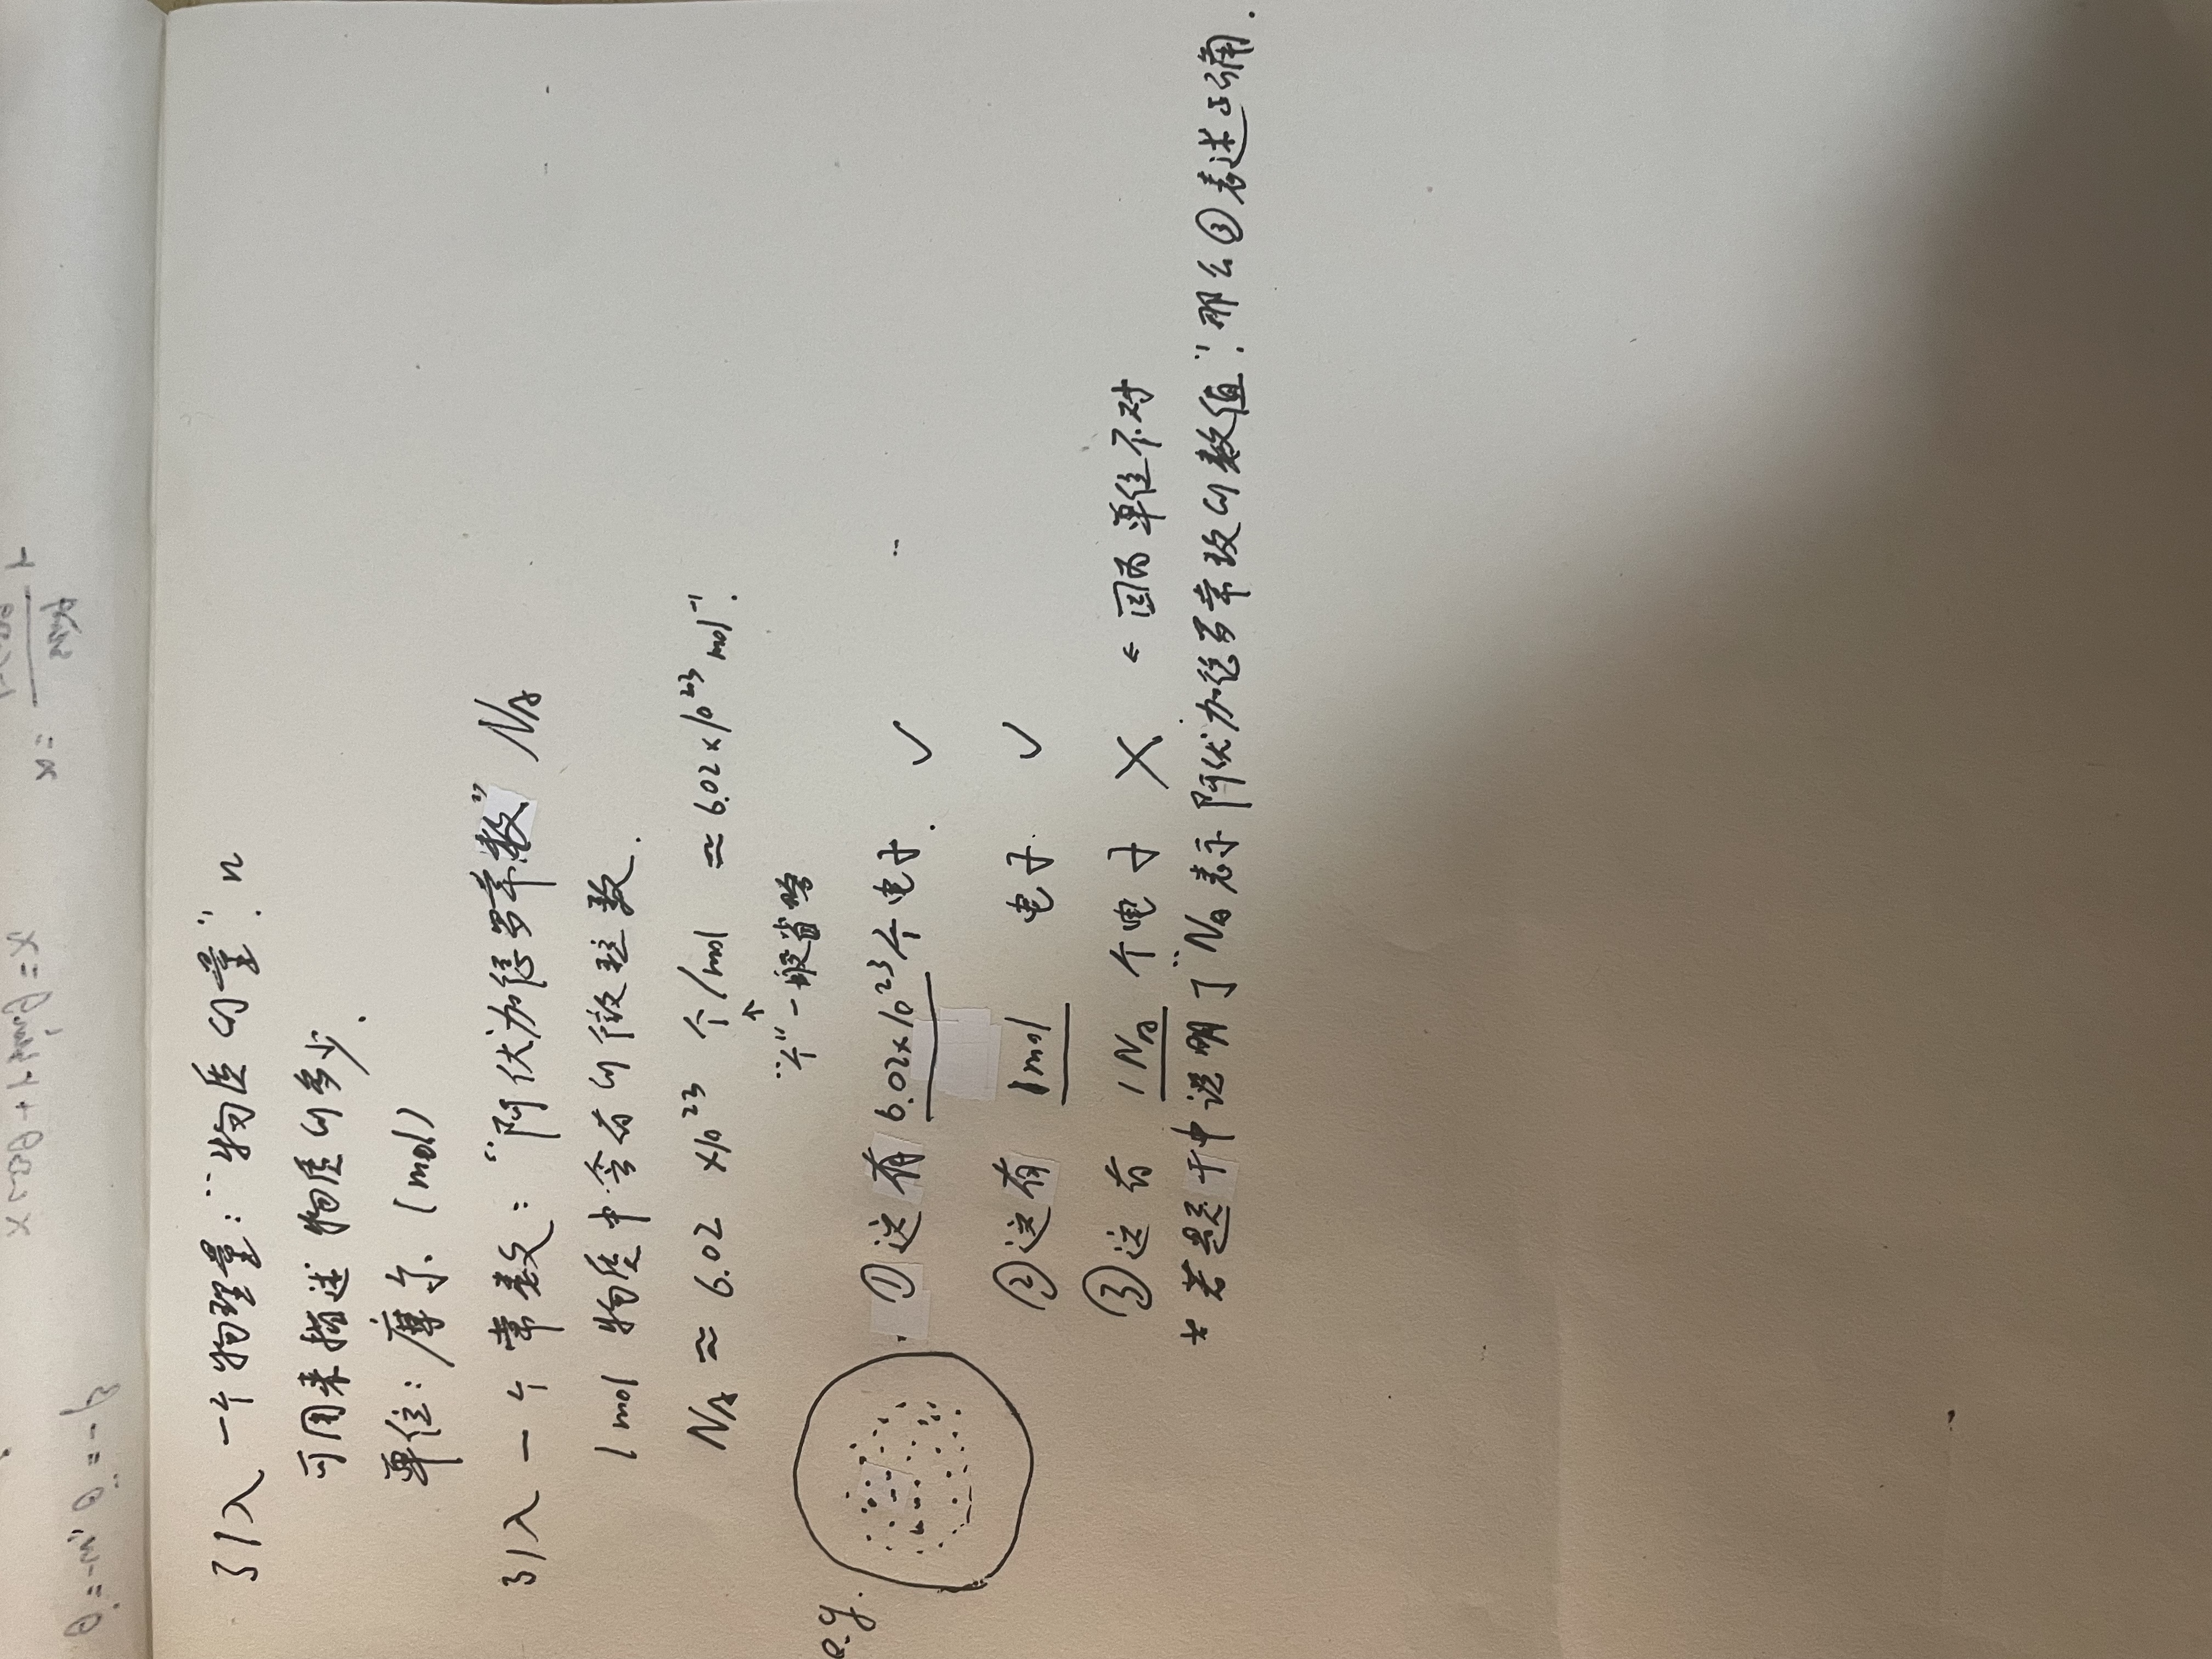 引入一个物理量:“物质的量”. n
可用来描述物质的多少.
单位:摩尔 (mol)
引入一个常数:“阿伏加德罗常数” NA
1mol 物质中含有的微粒数.
NA ≈ 6.02 ×10²³ 个/mol ≈ 6.02×10²³ mol⁻¹.
↑
“个”一般省略
e.g.
①这有 6.02×10²³个电子. ✓
②这有 1mol 电子. ✓
③这有 1NA 个电子 × ← 因为单位不对
* 若题干中说明了“NA表示阿伏加德罗常数的数值”,那么③表述正确.